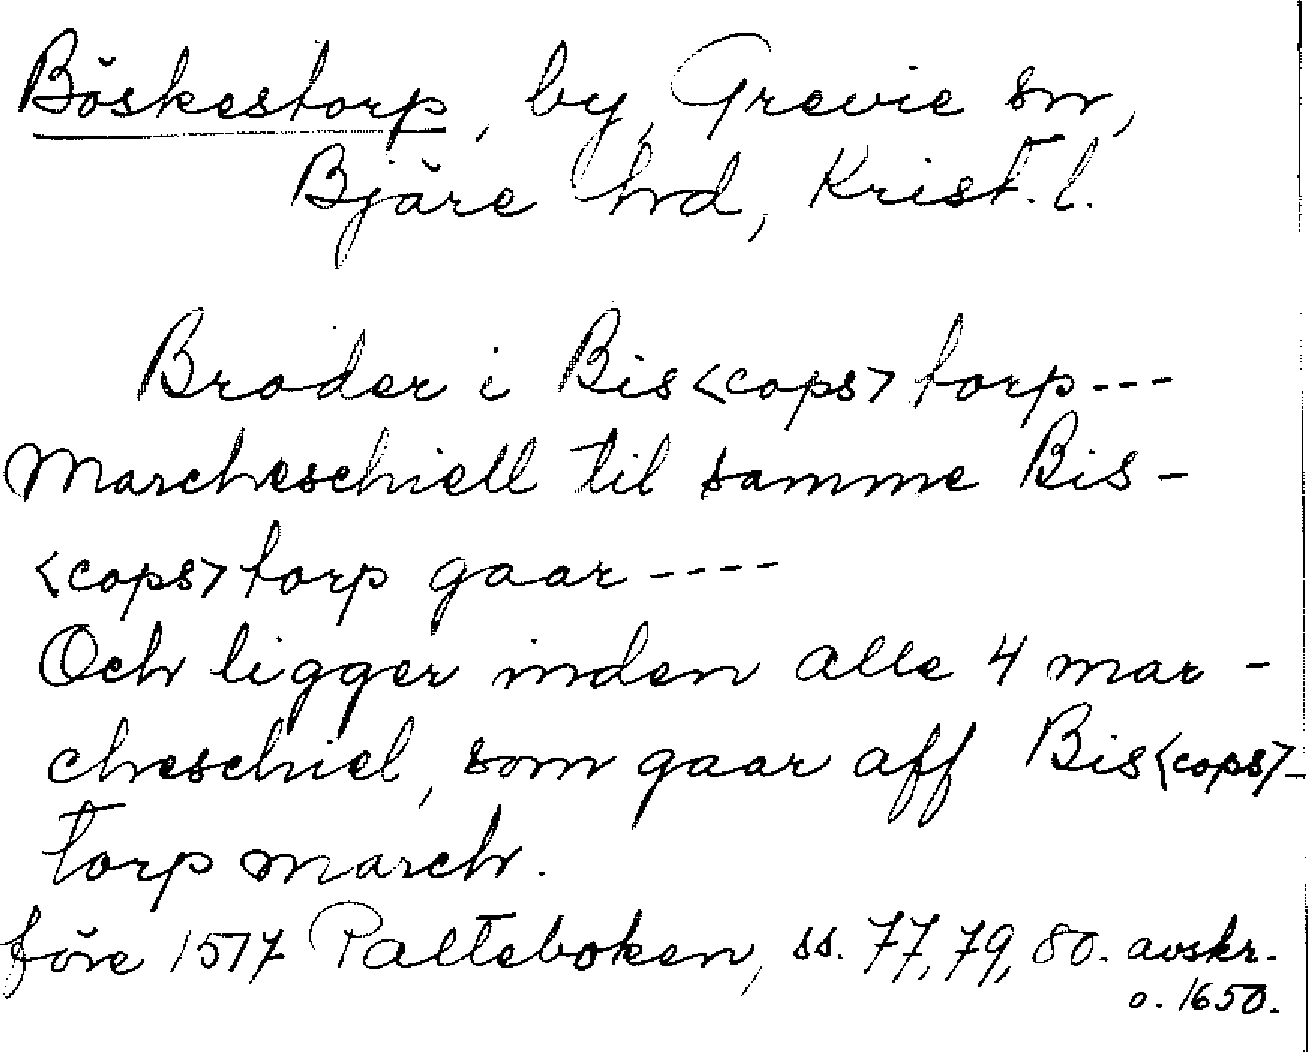 Böskestorp, by, Grevie sn,
Bjäre hd, Krist. l.
Broder i Bis<cops>torp---
Marcheschiell til samme Bis-
<cops>torp gaar----
Och ligger inden alle 4 mar-
cheschiel, som gaar aff Bis<cops>-
torp march.
före 1577 Palteboken, ss. 77, 79, 80. avskr.
o. 1650.